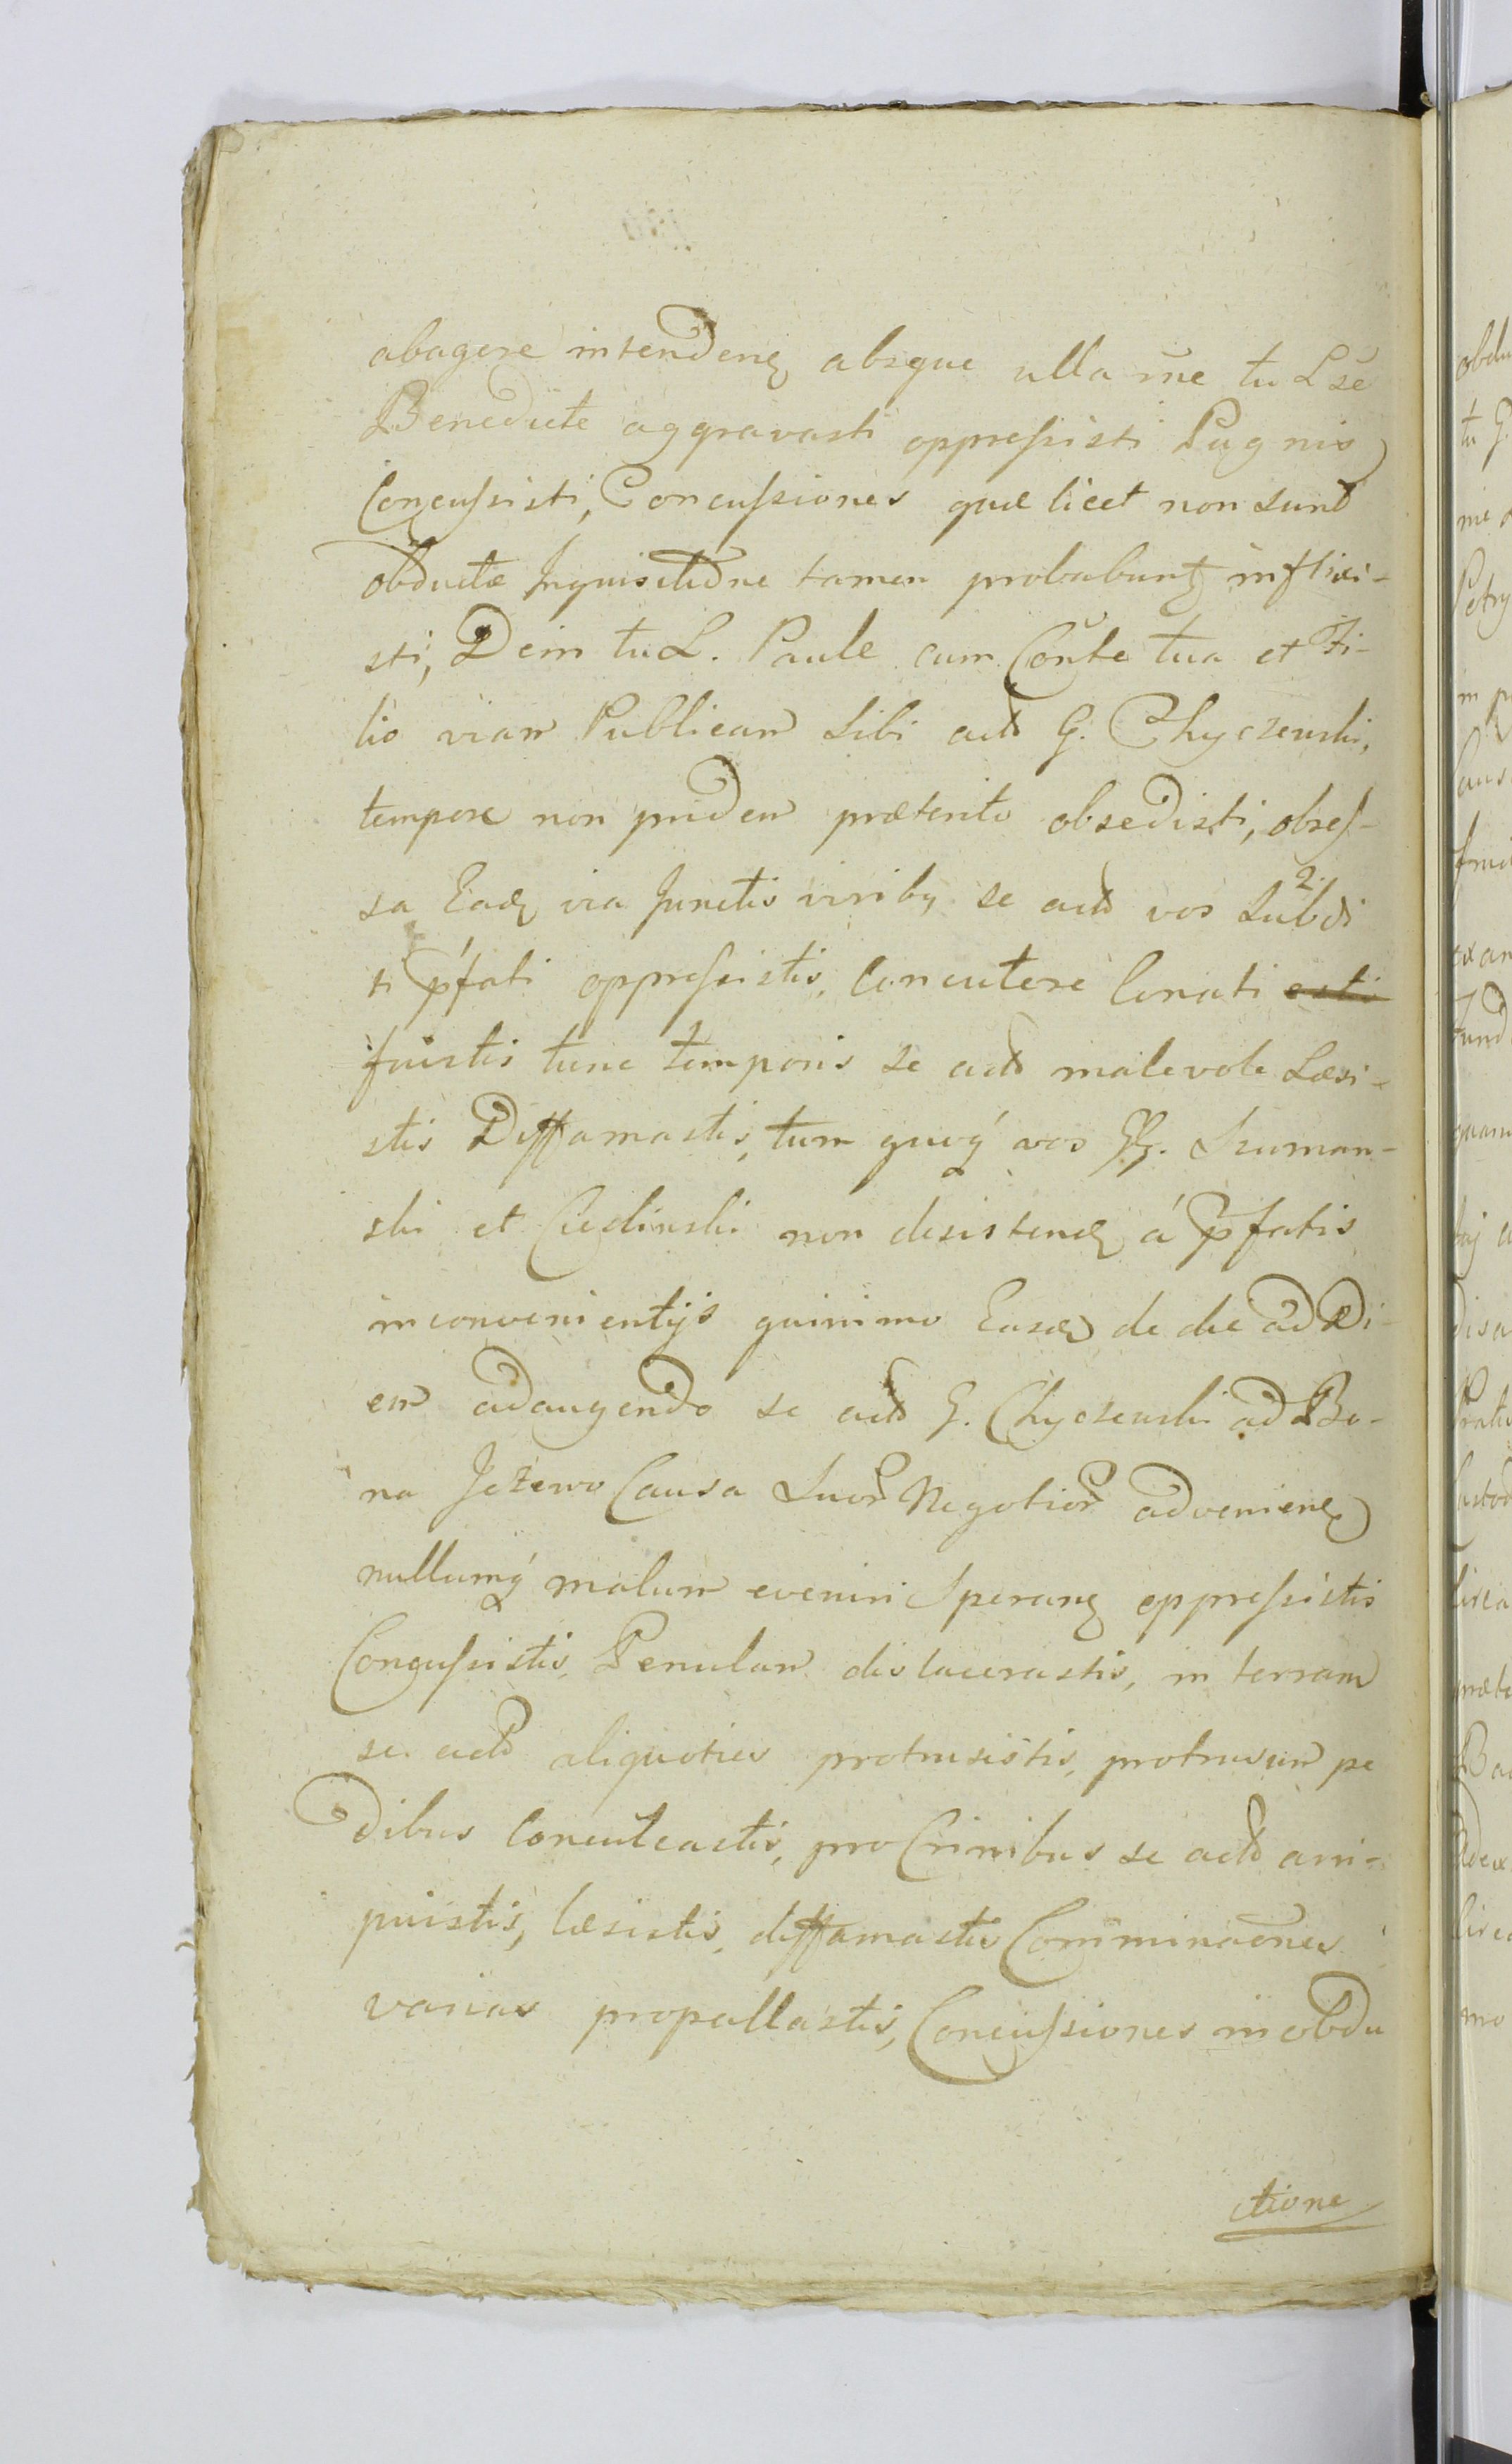 abagere intendenꝫ absque ulla rñe tu Lse
Benedicte aggravasti oppreſsisti Pugnis
Concuſsisti, Concuſsiones quæ licet non sunt
obductæ Inquisitione tamen probabuntꝫ inflixi-
sti, Dein tu L. Paule cum Conte tua et Fi-
lio viam Publicam Sibi actō G. Chyczewski,
tempore non pridem præterito obsedisti, obseſ-
sa Eadꝫ via Junctis viribꝫ se actō vos Subdi
ti p̃fati oppreſsistis, Concutere Conati estis
fuistis tunc temporis se actō malevole Læsi-
stis Diffamastis, tum quoqꝫ vos GG. Szuman-
ski et Cieclinski non desistenꝫ á p̃fatis
inconvenientijs quinimo Easdꝫ de die ad Di-
em adaugendo se actō G. Chyczewski ad Bo-
na Jeżewo Causa Suor̃ Negotior̃ advenienꝫ
nullumqꝫ malum eveniri Speranꝫ oppreſsistis
Concuſsistis, Penulam dislacerastis, in terram
se actō aliquoties protrusistis, protrusum pe
dibus Conculcastis, pro Crinibus se actō arri-
puistis, læsistis, diffamastis Comminaōnes
varias propallastis, Concuſsiones in obdu
ctione